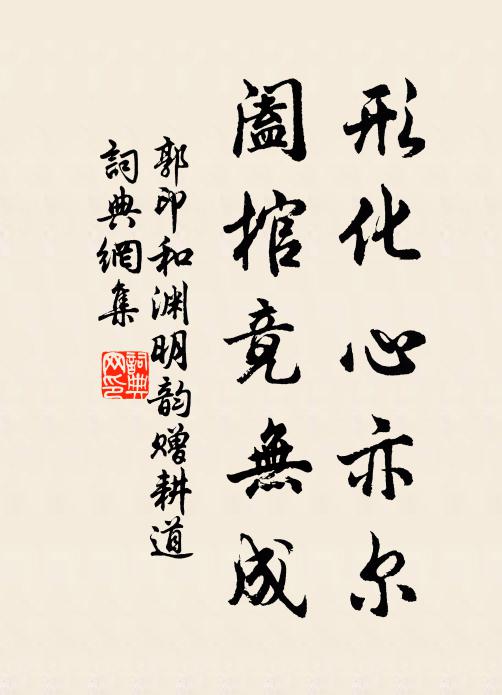 形化心亦尔
阖棺竟無成
郭印和渊明韵赠耕道
詞典網集
詞典网印